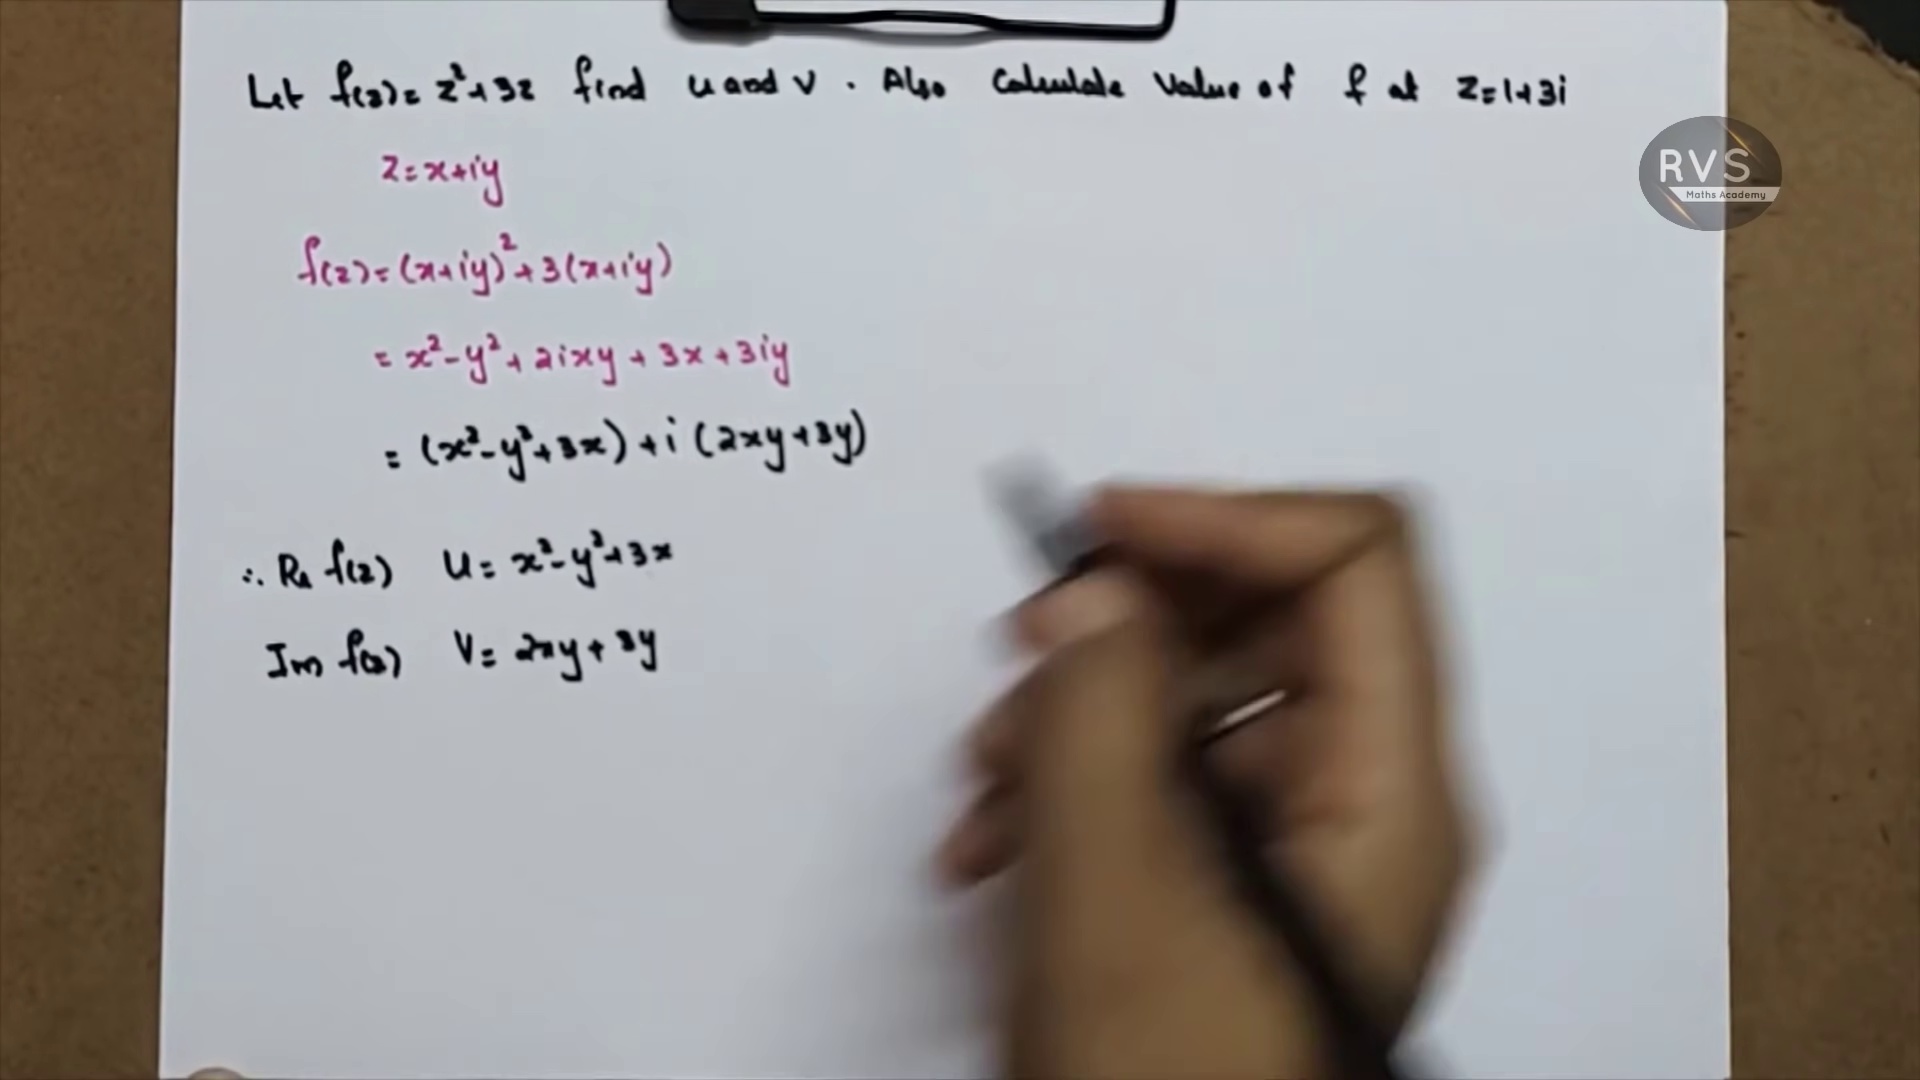 Let f(z) = z²+3z find u and v . Also Calculate Value of f at z=1+3i
RVS
Maths Academy
z = x+iy
f(z) = (x+iy)²+3(x+iy)
= x²-y²+2ixy+3x+3iy
= (x²-y²+3x)+i(2xy+3y)
∴ Re f(z) u = x²-y²+3x
Im f(z) V = 2xy+3y